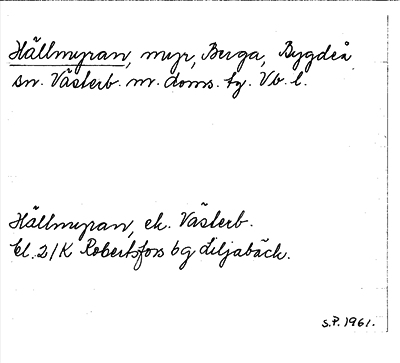 Hällmyran, myr, Berga, Bygdeå
sn. Västerb. nr. doms. tg. Vb. l.
Hällmyran, ek. Västerb.
bl. 21K Robertsfors bg Liljabäck.
S.P. 1961.